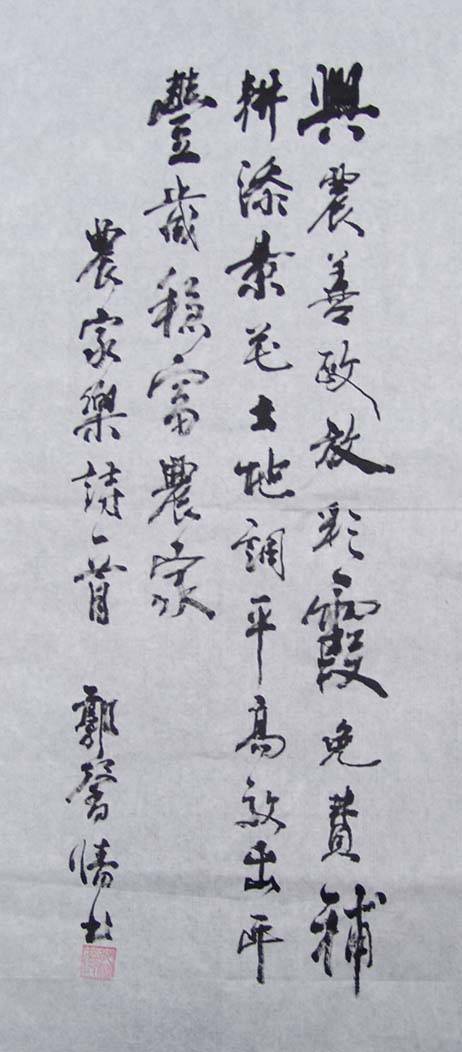 興農善政放彩霞免費補
耕添景花土地調平高效出年
豐歲稳富農家
農家樂詩一首 郭馨情书